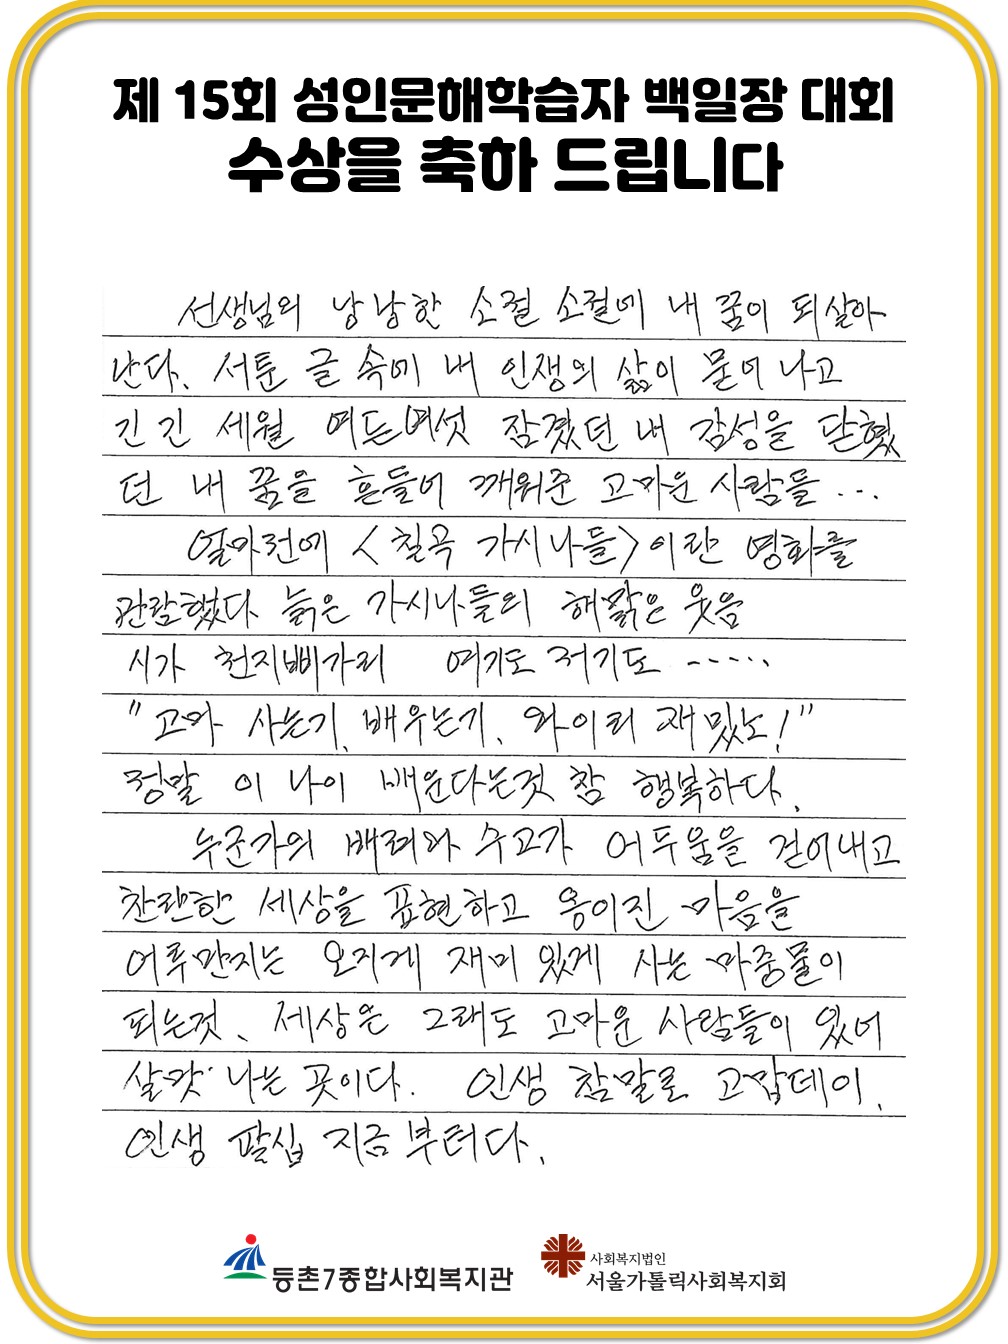 제 15회 성인문해학습자 백일장 대회
수상을 축하 드립니다
선생님의 낭낭한 소절 소절에 내 꿈이 되살아
난다. 서툰 글 속에 내 인생의 삶이 묻어 나고
긴 긴 세월 여든여섯 잠겼던 내 감성을 닫혔
던 내 꿈을 흔들어 깨워준 고마운 사람들...
얼마전에 <칠곡 가시나들>이란 영화를
관람했다 늙은 가시나들의 해맑은 웃음
시가 천지삐가리 여기도 저기도 .....
"고마 사는기, 배우는기, 와이리 재밌노!"
정말 이 나이 배운다는것 참 행복하다.
누군가의 배려와 수고가 어두움을 걷어내고
찬란한 세상을 표현하고 옹이진 마음을
어루만지는 오지게 재미 있게 사는 마중물이
되는것, 세상은 그래도 고마운 사람들이 있어
살맛 나는 곳이다. 인생 참말로 고맙데이.
인생 팔십 지금 부터다.
등촌7종합사회복지관
사회복지법인
서울가톨릭사회복지회